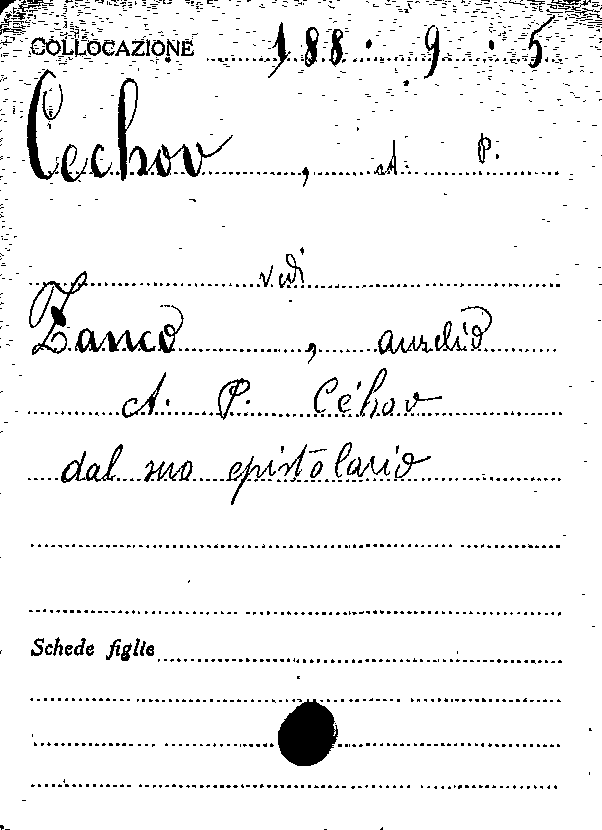 COLLOCAZIONE 188. 9. 5
Cechov, A. P.
vedi
Zanco, Aurelio
A. P. Céhov
dal suo epistolario
Schede figlie